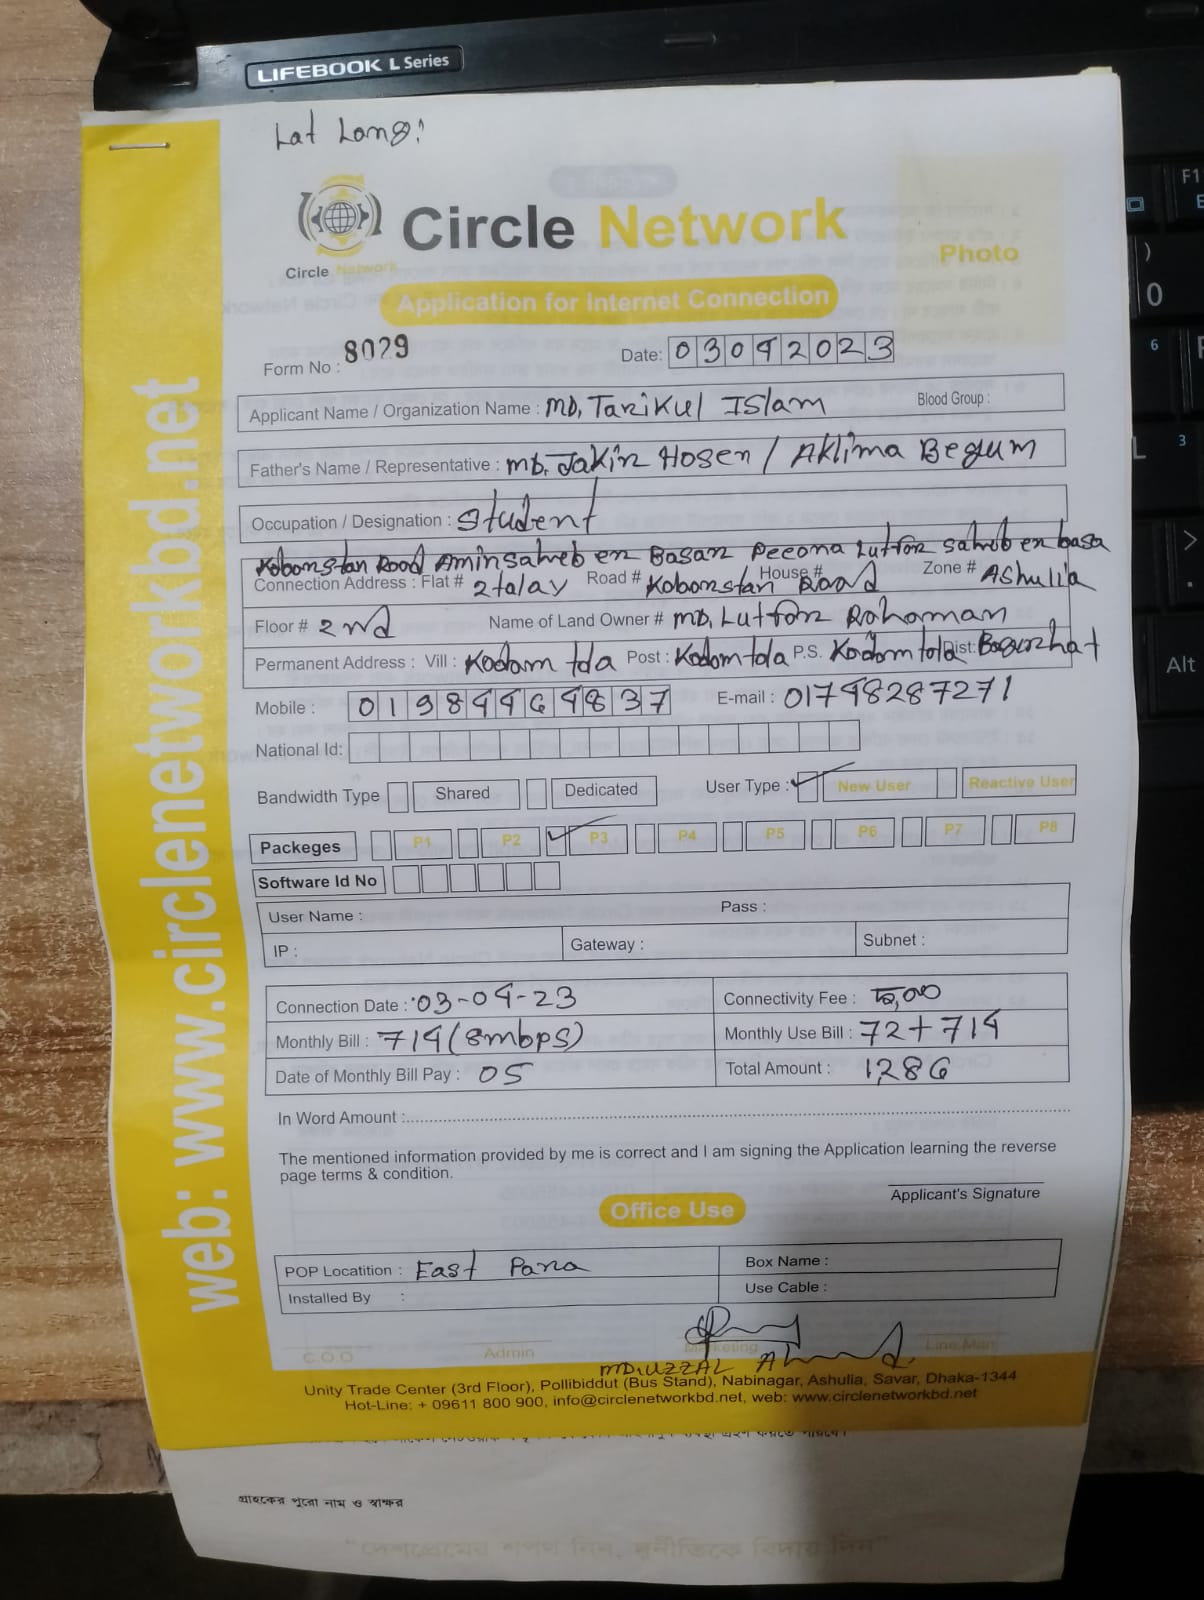 LIFEBOOK L Series
Lat Long:
Circle Network
Circle Network
Photo
Application for Internet Connection
Form No : 8029
Date: 03042023
Applicant Name / Organization Name : MD. Tarikul Islam Blood Group :
Father's Name / Representative : MD. Jakir Hosen / Aklima Begum
Occupation / Designation : Student
Kobomstan Road Aminsaheb en Basar Lutfor saheb en basa
Connection Address : Flat # 2 talay Road # Kobomstan Road House # Zone # Ashulia
Floor # 2nd Name of Land Owner # MD. Lutfor Rahaman
Permanent Address : Vill : Kodam tola Post : Kodomtola P.S. Kodom tola Dist: Bagerhat
Mobile : 01984464837 E-mail : 01748287271
National Id:
Bandwidth Type Shared Dedicated User Type : New User Reactive User
Packeges P1 P2 P3 P4 P5 P6 P7 P8
Software Id No
User Name : Pass :
IP : Gateway : Subnet :
Connection Date : 03-04-23 Connectivity Fee :
Monthly Bill : 714 (8mbps) Monthly Use Bill : 72+714
Date of Monthly Bill Pay : 05 Total Amount : 1286
In Word Amount :
The mentioned information provided by me is correct and I am signing the Application learning the reverse
page terms & condition.
Applicant's Signature
Office Use
POP Locatition : East Para Box Name :
Installed By : Use Cable :
C.O.O Admin Marketing Line Man
MD. UZZAL Ahmed
Unity Trade Center (3rd Floor), Pollibiddut (Bus Stand), Nabinagar, Ashulia, Savar, Dhaka-1344
Hot-Line: + 09611 800 900, info@circlenetworkbd.net, web: www.circlenetworkbd.net
web: www.circlenetworkbd.net
গ্রাহকের পুরো নাম ও স্বাক্ষর
"দেশপ্রেমের শপথ নিন, দুর্নীতিকে বিদায় দিন"
F1
)
0
6
L
3
>
.
Alt